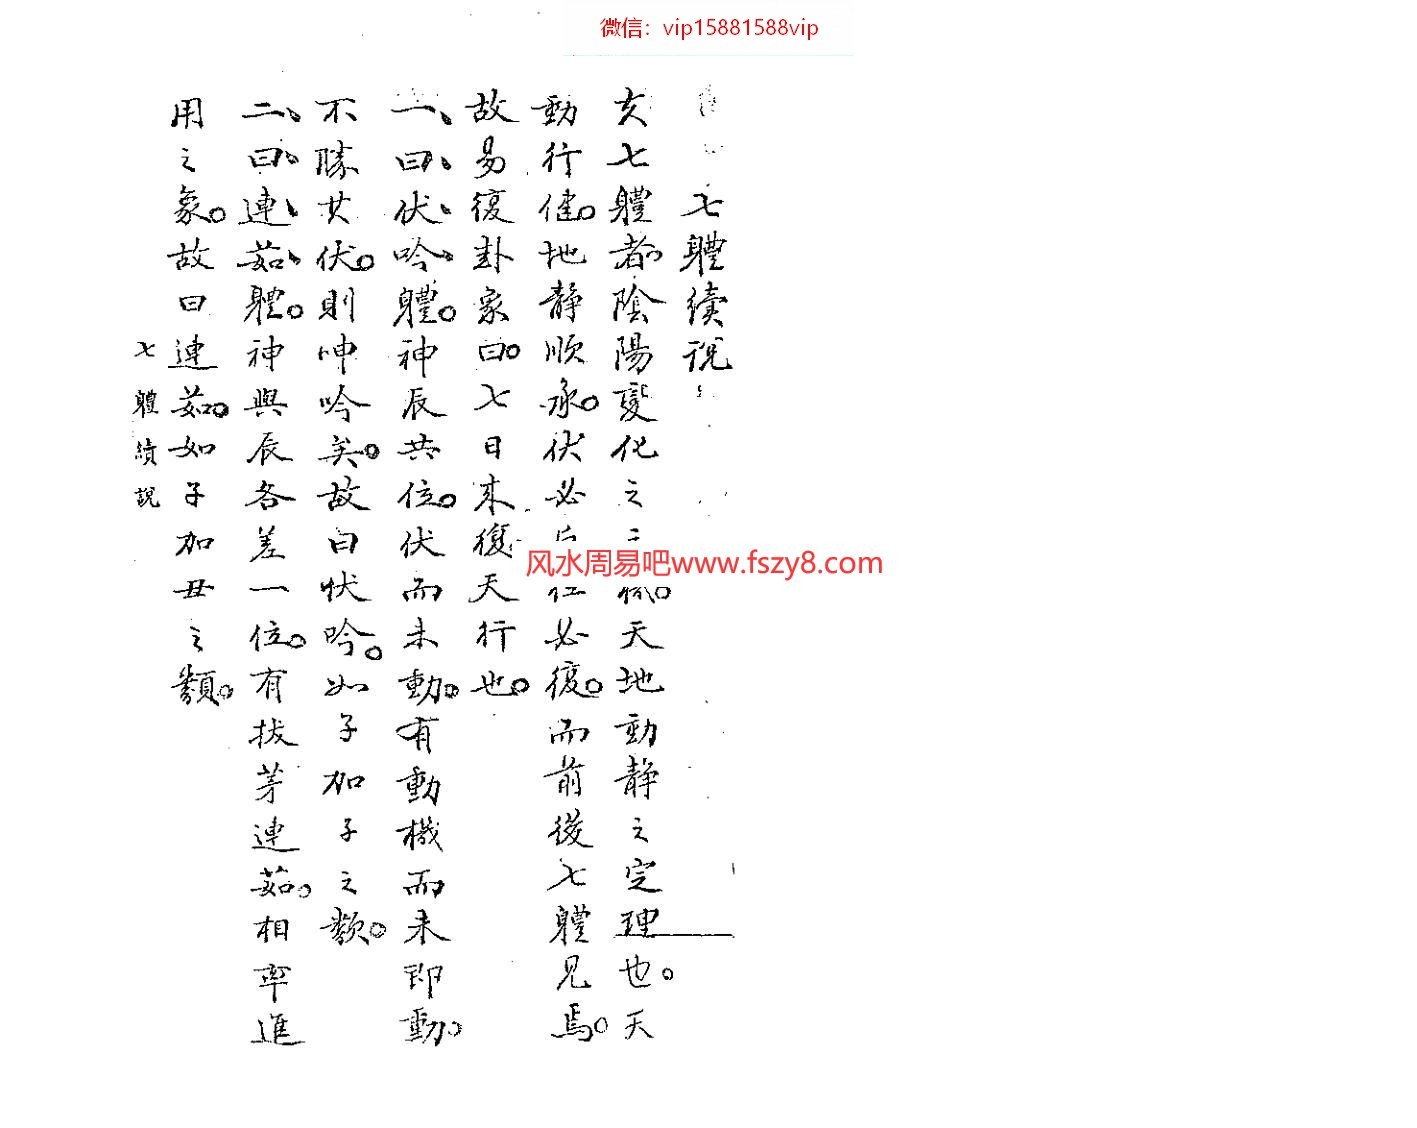 微信：vip15881588vip
七體續說
亥七體者陰陽變化之二 天地動靜之定理也。天
動行健。地靜順承。伏必 必復。而前後七體見焉。
故易復卦象曰。七日來復天行也。
一、曰、伏、吟、體。神辰共位。伏而未動。有動機而未即動。
不勝其伏。則呻吟矣。故曰伏吟。如子加子之類。
二、曰、連、茹、體。神與辰各差一位。有拔茅連茹。相率進
用之象。故曰連茹。如子加丑之類。
七體續說
风水周易吧www.fszy8.com